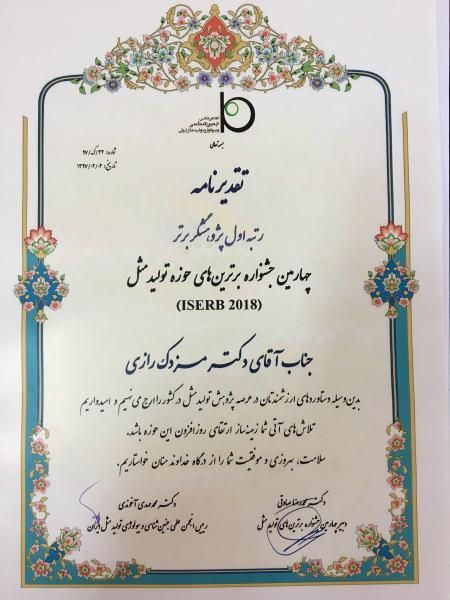 انجمن علمی
جنین‌شناسی
و بیولوژی تولید مثل ایران
بسمه تعالی
شماره: ۹۷/ک/۳۲
تاریخ: ۱۳۹۷/۰۲/۰۴
تقدیرنامه
رتبه اول پژوهشگر برتر
چهارمین جشنواره برترین‌های حوزه تولید مثل
(ISERB 2018)
جناب آقای دکتر مزدک رازی
بدین‌وسیله دستاوردهای ارزشمندتان در عرصه پژوهش تولید مثل در کشور را ارج می‌نهیم و امیدواریم
تلاش‌های آتی شما زمینه‌ساز ارتقای روزافزون این حوزه باشد.
سلامت، بهروزی و موفقیت شما را از درگاه خداوند منان خواستاریم.
دکتر محمدرضا صادقی
دبیر چهارمین جشنواره برترین‌های تولید مثل
دکتر محمدمهدی آخوندی
رییس انجمن علمی جنین شناسی و بیولوژی تولید مثل ایران